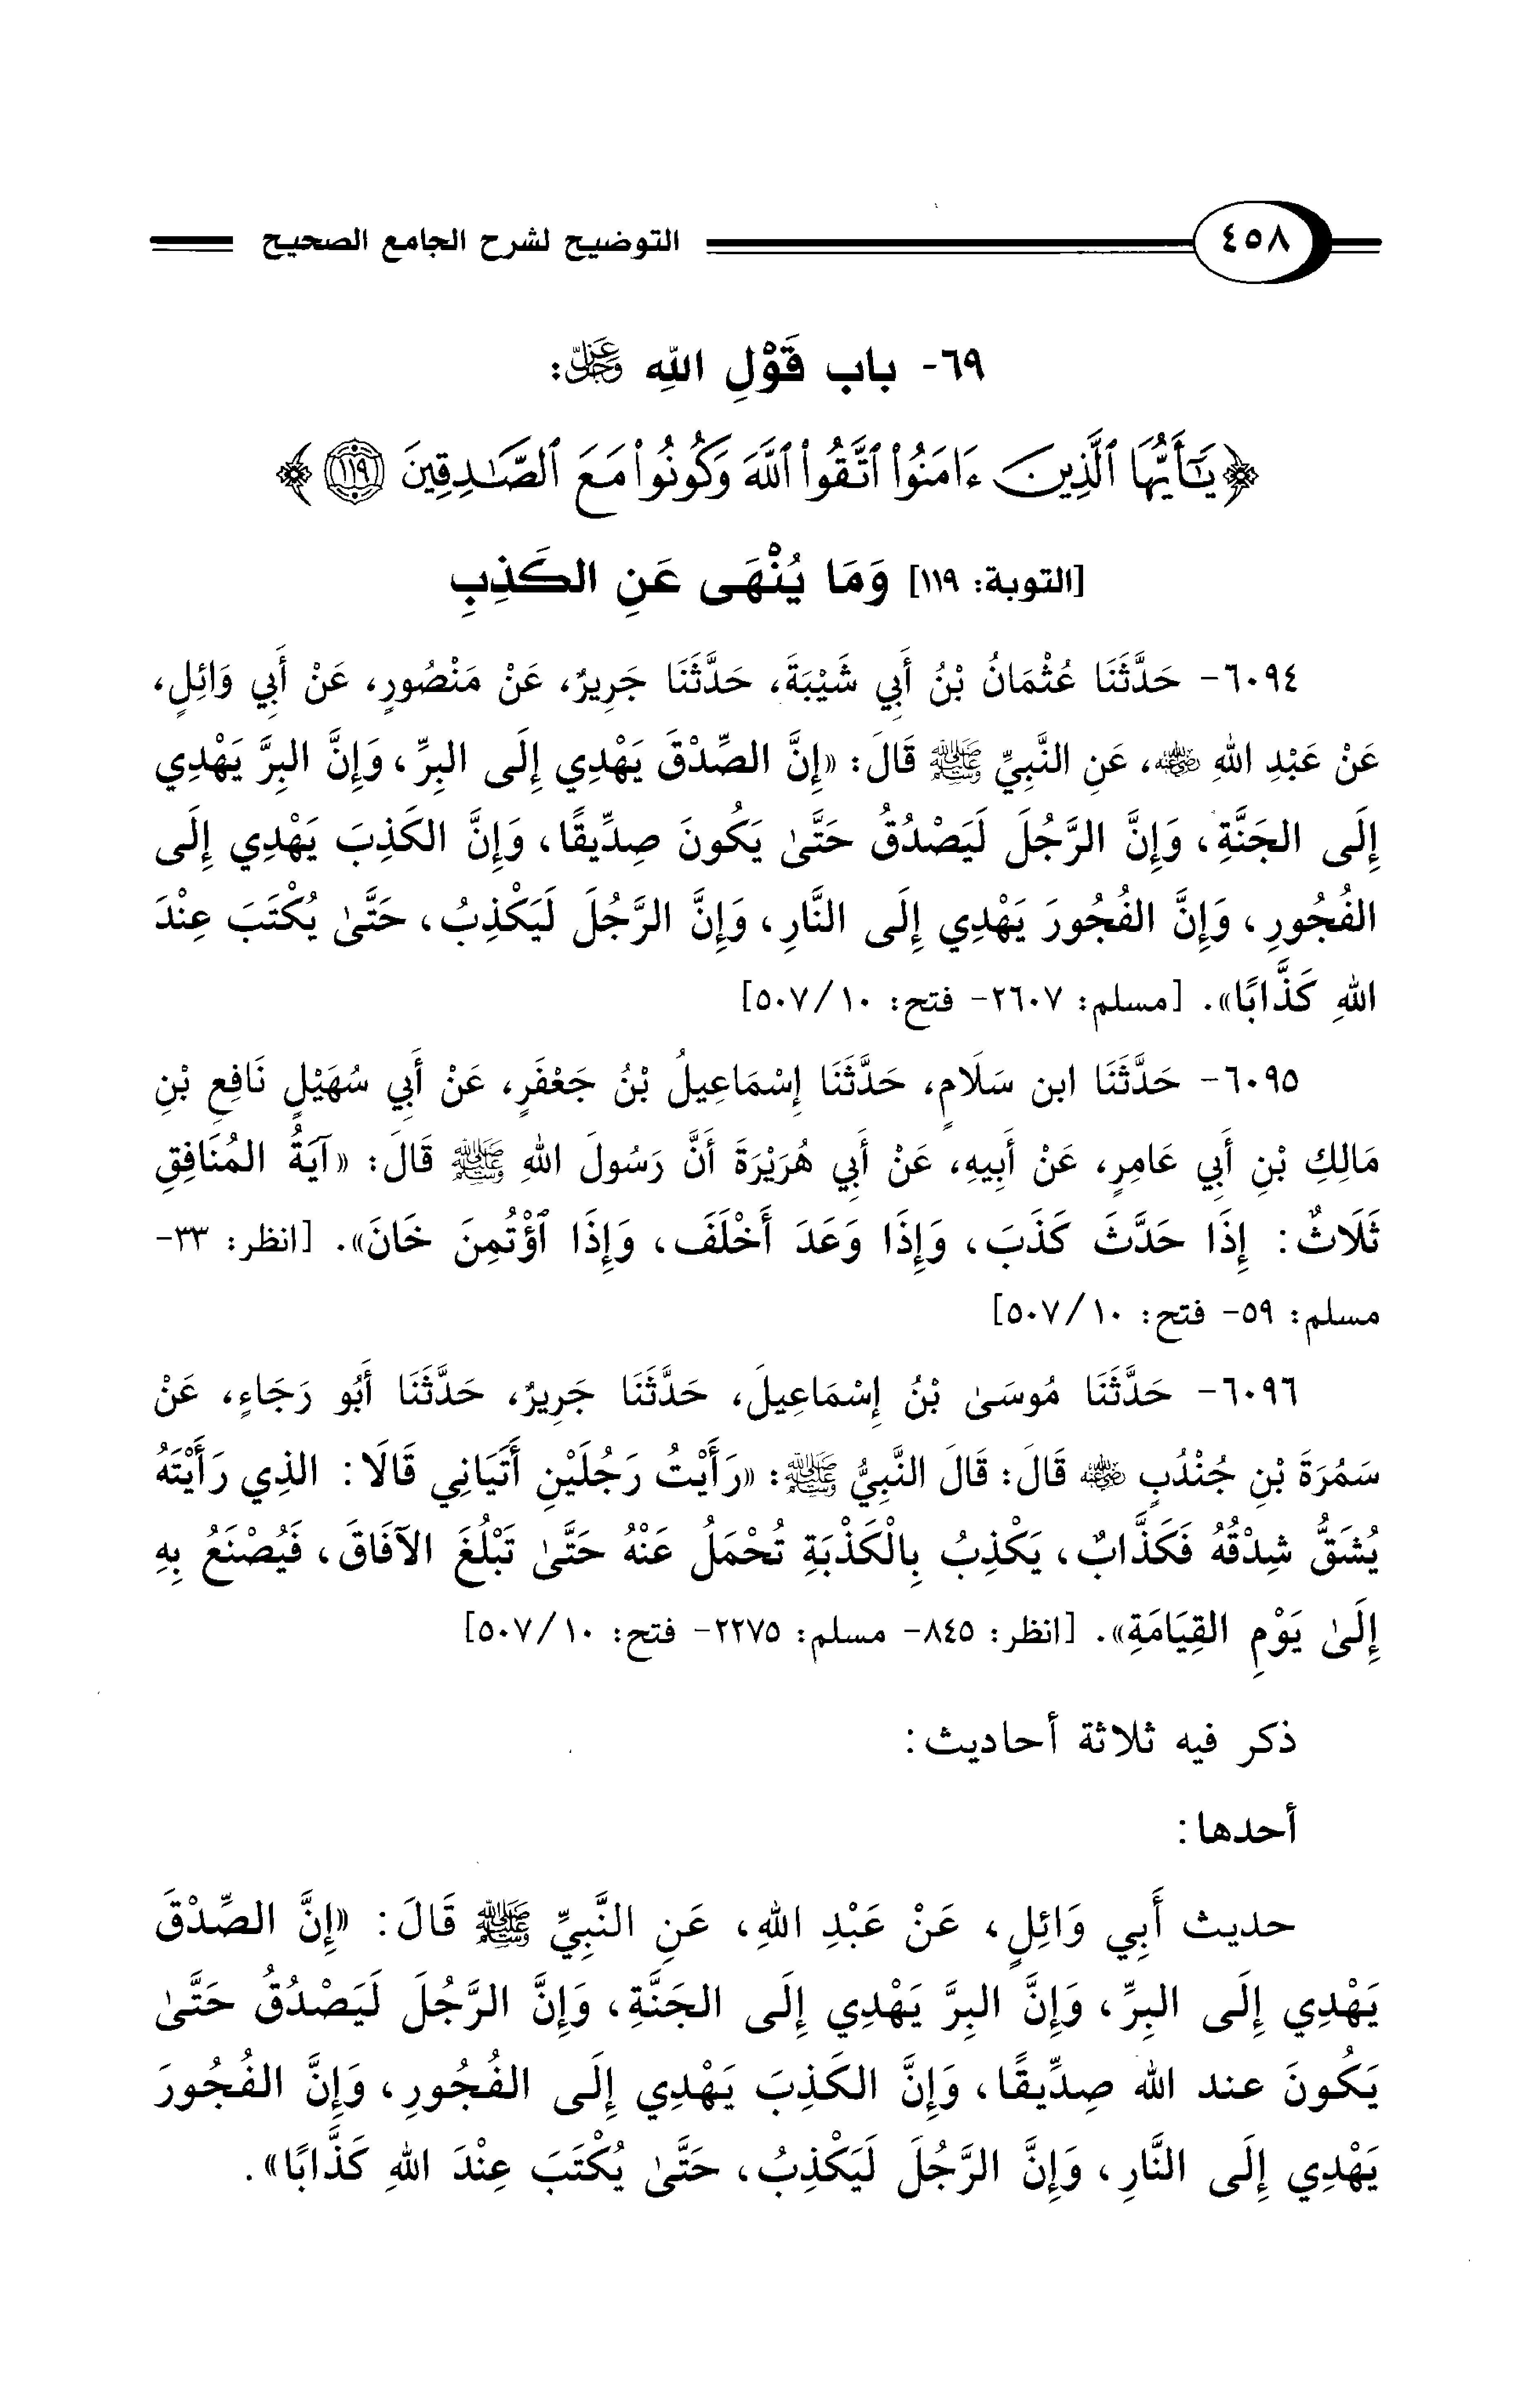 ٤٥٨ التوضيح لشرح الجامع الصحيح
٦٩- باب قَوْلِ اللهِ عَزَّ وَجَلَّ:
﴿يَٰٓأَيُّهَا ٱلَّذِينَ ءَامَنُوا۟ ٱتَّقُوا۟ ٱللَّهَ وَكُونُوا۟ مَعَ ٱلصَّٰدِقِينَ ١١٩﴾
[التوبة: ١١٩] وَمَا يُنْهَى عَنِ الكَذِبِ
٦٠٩٤- حَدَّثَنَا عُثْمَانُ بْنُ أَبِي شَيْبَةَ، حَدَّثَنَا جَرِيرٌ، عَنْ مَنْصُورٍ، عَنْ أَبِي وَائِلٍ،
عَنْ عَبْدِ اللهِ رضي الله عنه، عَنِ النَّبِيِّ ﷺ قَالَ: «إِنَّ الصِّدْقَ يَهْدِي إِلَى البِرِّ، وَإِنَّ البِرَّ يَهْدِي
إِلَى الجَنَّةِ، وَإِنَّ الرَّجُلَ لَيَصْدُقُ حَتَّىٰ يَكُونَ صِدِّيقًا، وَإِنَّ الكَذِبَ يَهْدِي إِلَى
الفُجُورِ، وَإِنَّ الفُجُورَ يَهْدِي إِلَى النَّارِ، وَإِنَّ الرَّجُلَ لَيَكْذِبُ، حَتَّىٰ يُكْتَبَ عِنْدَ
اللهِ كَذَّابًا». [مسلم: ٢٦٠٧- فتح: ١٠/٥٠٧]
٦٠٩٥- حَدَّثَنَا ابن سَلَامٍ، حَدَّثَنَا إِسْمَاعِيلُ بْنُ جَعْفَرٍ، عَنْ أَبِي سُهَيْلٍ نَافِعِ بْنِ
مَالِكِ بْنِ أَبِي عَامِرٍ، عَنْ أَبِيهِ، عَنْ أَبِي هُرَيْرَةَ أَنَّ رَسُولَ اللهِ ﷺ قَالَ: «آيَةُ المُنَافِقِ
ثَلَاثٌ: إِذَا حَدَّثَ كَذَبَ، وَإِذَا وَعَدَ أَخْلَفَ، وَإِذَا ٱؤْتُمِنَ خَانَ». [انظر: ٣٣-
مسلم: ٥٩- فتح: ١٠/٥٠٧]
٦٠٩٦- حَدَّثَنَا مُوسَىٰ بْنُ إِسْمَاعِيلَ، حَدَّثَنَا جَرِيرٌ، حَدَّثَنَا أَبُو رَجَاءٍ، عَنْ
سَمُرَةَ بْنِ جُنْدُبٍ رضي الله عنه قَالَ: قَالَ النَّبِيُّ ﷺ: «رَأَيْتُ رَجُلَيْنِ أَتَيَانِي قَالَا: الذِي رَأَيْتَهُ
يُشَقُّ شِدْقُهُ فَكَذَّابٌ، يَكْذِبُ بِالْكَذْبَةِ تُحْمَلُ عَنْهُ حَتَّىٰ تَبْلُغَ الآفَاقَ، فَيُصْنَعُ بِهِ
إِلَىٰ يَوْمِ القِيَامَةِ». [انظر: ٨٤٥- مسلم: ٢٢٧٥- فتح: ١٠/٥٠٧]
ذكر فيه ثلاثة أحاديث:
أحدها:
حديث أَبِي وَائِلٍ، عَنْ عَبْدِ اللهِ، عَنِ النَّبِيِّ ﷺ قَالَ: «إِنَّ الصِّدْقَ
يَهْدِي إِلَى البِرِّ، وَإِنَّ البِرَّ يَهْدِي إِلَى الجَنَّةِ، وَإِنَّ الرَّجُلَ لَيَصْدُقُ حَتَّىٰ
يَكُونَ عند الله صِدِّيقًا، وَإِنَّ الكَذِبَ يَهْدِي إِلَى الفُجُورِ، وَإِنَّ الفُجُورَ
يَهْدِي إِلَى النَّارِ، وَإِنَّ الرَّجُلَ لَيَكْذِبُ، حَتَّىٰ يُكْتَبَ عِنْدَ اللهِ كَذَّابًا».